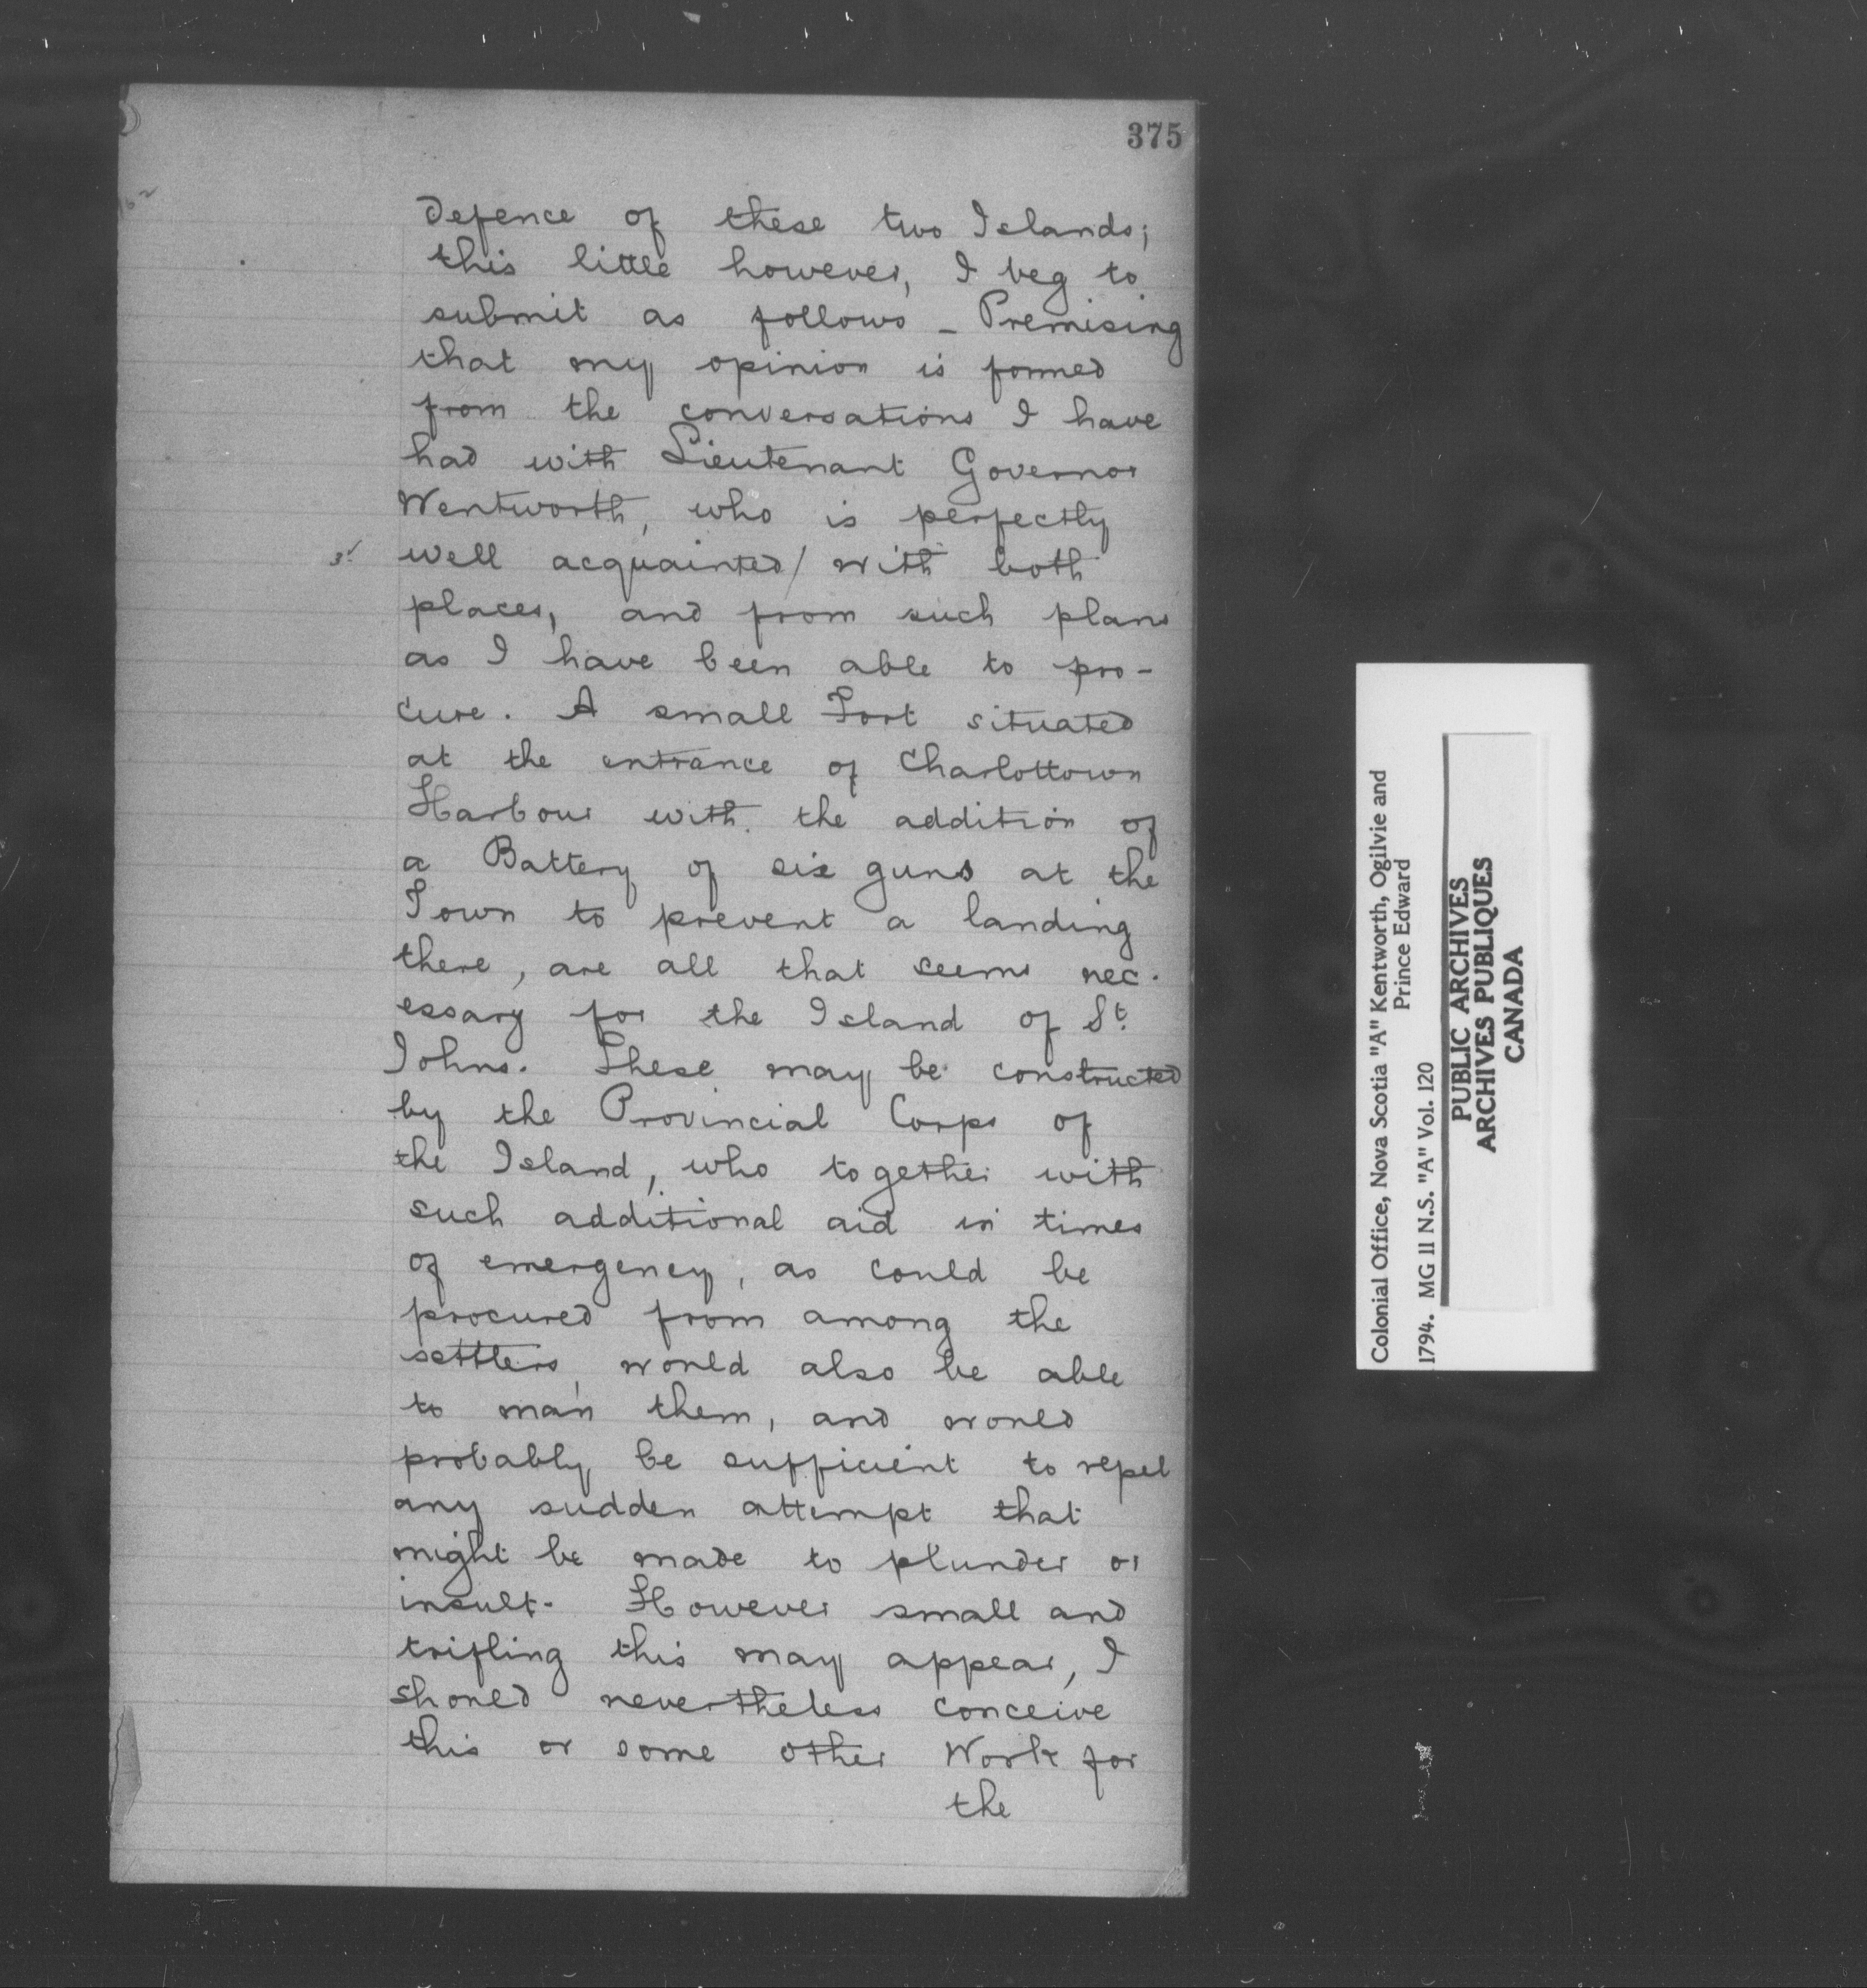 375
Defence of these two Islands;
this little however, I beg to
submit as follows - Premising
that my opinion is formed
from the conversations I have
had with Lieutenant Governor
Wentworth, who is perfectly
well acquainted/ with both
places, and from such plans
as I have been able to pro-
cure. A small Fort situated
at the entrance of Charlottown
Harbour with the addition of
a Battery of six guns at the
Town to prevent a landing
there, are all that seems nec-
essary for the Island of St.
Johns. These may be constructed
by the Provincial Corps of
the Island, who together with
such additional aid in times
of emergency, as could be
procured from among the
settlers, would also be able
to man them, and would
probably be sufficient to repel
any sudden attempt that
might be made to plunder or
insult. However small and
trifling this may appear, I
should nevertheless conceive
this or some other Work for
the
Colonial Office, Nova Scotia "A" Kentworth, Ogilvie and
Prince Edward
1794. MG 11 N.S. "A" Vol. 120
PUBLIC ARCHIVES
ARCHIVES PUBLIQUES
CANADA